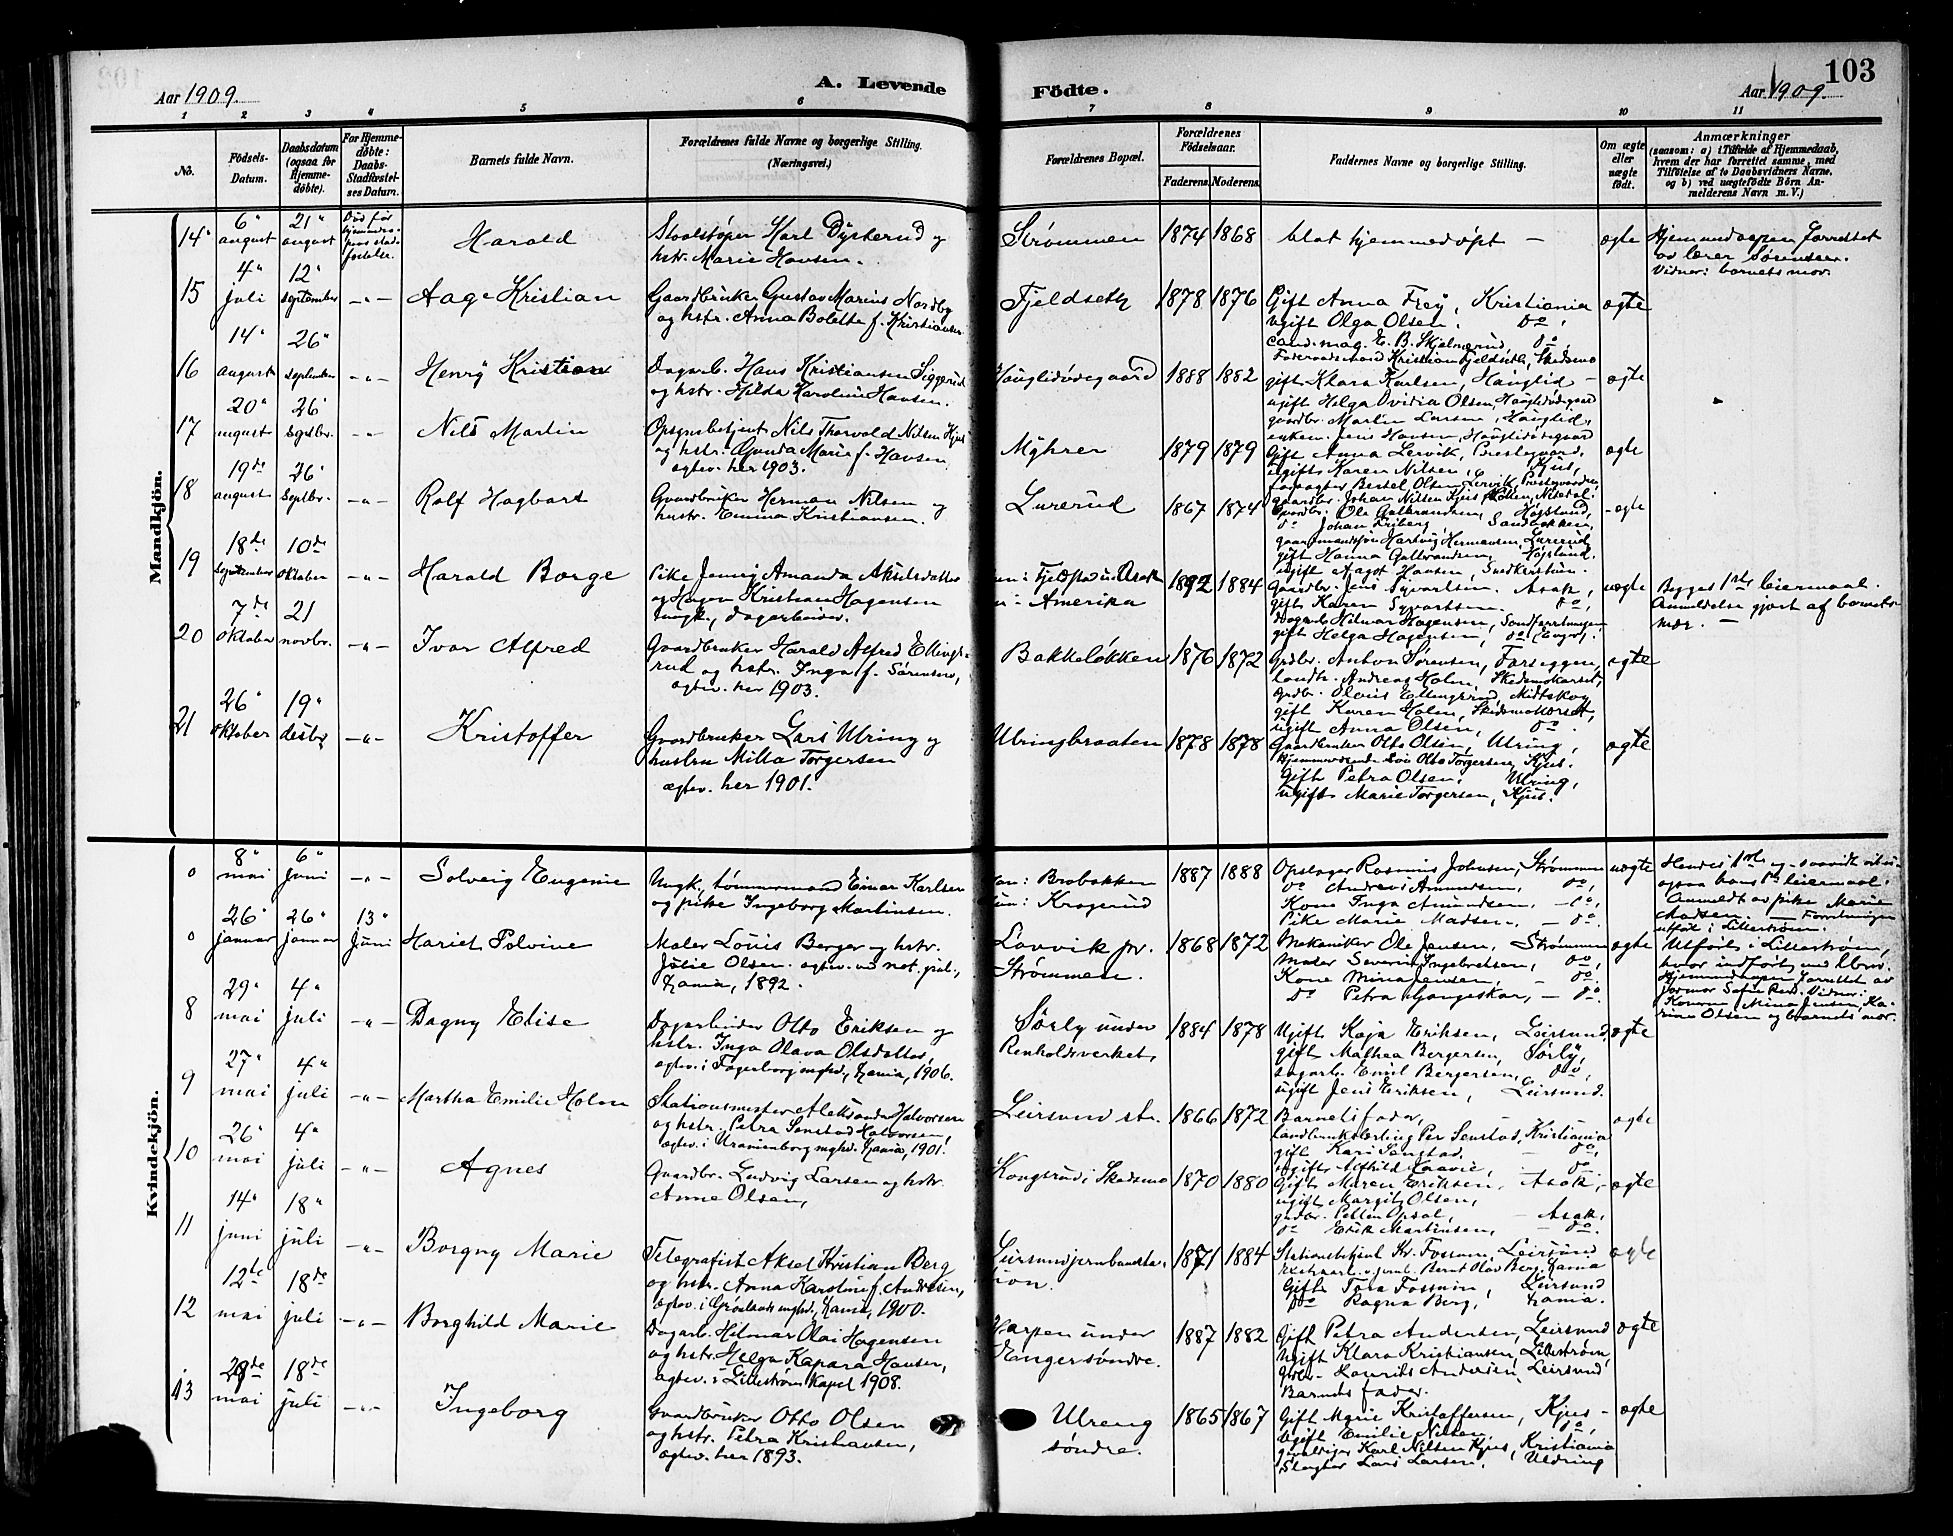 103
Aar 1909.
A. Levende
Födte.
Aar 1909.
1 2 3 4 5 6 7 8 9 10 11
No.
Födsels-Datum.
Daabsdatum (ogsaa for Hjemmedöbte).
For Hjemmedöbte: Daabs-Stadfæstelses Datum.
Barnets fulde Navn.
Forældrenes fulde Navne og borgerlige Stilling. (Næringsvei.)
Forældrenes Bopæl.
Forældrenes Födselsaar.
Faderens. Moderens.
Faddernes Navne og borgerlige Stilling.
Om ægte eller uægte födt.
Anmærkninger
(saasom: a) i Tilfælde af Hjemmedaab, hvem der har forrettet samme, med Tilföielse af to Daabsvidners Navne, og b) ved uægtefödte Börn Anmelderens Navn m. V.)
Mandkjön.
14 6 august 21 august Død før hjemmedaapens stadfestelse. Harald
Karl Dysterud og hstr. Marie Hansen.
Strømmen 1874 1868 blot hjemmedøpt — ægte
Hjemmedaapen forrettet av lærer Sørensen. Vidner: barnets mor.
15 4 juli 12 september -"- Aage Kristian
Gaardbruker Gustav Marius Nordby og hstr. Anna Bolette f. Kristiansen
Fjeldseth 1878 1876 Gift Anna Frey, Kristiania
Ugift Olga Olsen, do,
cand. mag. E. B. Skjelnerud, do,
Foderaadsmand Kristian Fjeldseth, Skedsmo
ægte
16 14 august 26 september -"- Henry Kristian
Dagarb. Hans Kristiansen Siggerud og hstr. Hilda Karoline Hansen.
1888 1882 gift Klara Karlsen, Hauglid —
ugift Helga Ovidia Olsen,
gaardbr. Martin Larsen, Hauglid,
enkem. Jens Hansen,
ægte
17 20 august 26 septbr. -"- Nils Martin
Opsynsbetjent Nils Thorvald Nilsen Kjus og hstr. Gunda Marie f. Hansen, egtev. her 1903.
Myhrer 1879 1879 Gift Anna Lervik, Prestegaard,
Ugift Karen Nilsen, Kjus,
Bertel Olsen Lervik, Prestegaarden,
gaardbr. Johan Nilsen Kjus
ægte
18 19de august 26 Septbr. -"- Rolf Hagbart
Gaardbruker Herman Nilsen og hustr. Emma Kristiansen.
Lurerud 1867 1874 Gaardbr. Ole Gulbrandsen, Høgslund,
do Johan Friberg, Sandbakken,
gaardmandssøn Hartvig Hermansen, Lurerud,
gift Hanna Gulbrandsen, Høgslund.
Ugift Aagot Hansen,
ægte
19 18de September 10de Oktober -"- Harald Borge
Pike Jenny Amanda Akselsdatter og Hagen Kristian Hagensen ungk., dagarbeider.
i Amerika 1892 1884 Gaardbr. Jens Syvertsen, Asak,
gift Karen Syvertsen, do,
Dagarb. Hilmar Hagensen,
gift Helga Hagensen, do
uægte
Begges 1ste leiermaal. Anmeldelse gjort af barnets mor. —
20 7de Oktober 21 novbr. -"- Ivar Alfred
Gaardbruker Harald Alfred Ellingsrud og hstr. Inga f. Sørensen, egtev. her 1903.
Bakkeløkken 1876 1872 Grdbr. Anton Sørensen, Farseggen,
landh. Andreas Holm, Skedsmokorset,
Grdbr. Olaus Ellingsrud, Midtskog
gift Karen Holm, Skedsmokorset,
Ugift Anna Olsen, do.
ægte
21 26 oktober 19 desbr. -"- Kristoffer
Gaardbruker Lars Ulring og hustru Milla Torgersen egtev. her 1901.
Ulringbraaten 1878 1878 Gaardbruker Otto Olsen, Ulring,
Hjemmeværende søn Otto Torgersen, Kjus.
Gift Petra Olsen, Ulring,
Ugift Marie Torgersen, Kjus.
ægte
Kvindekjön.
0 8 mai 6 Juni -"- Solveig Eugenie
Ungk., tømmermand Einar Karlsen og pike Ingeborg Martinsen.
Brobakken
Krogerud
1887 1888 Opslager Rasmus Johnsen, Strømmen
do Andreas Amundsen, do,
Kone Inga Amundsen, — do,
Pike Marie Madsen, — do.
uægte
Hendes 1ste og — saavidt vites — ogsaa hans 1ste leiermaal. Anmeldt av pike Marie Madsen. — Forretningen utført i Lillestrøm.
0 26 januar 26 januar 13 Juni Hariet Polvine
Maler Louis Berger og hstr. Julie Olsen. egtev. ved not. pub., Kr.ania, 1892.
Løvvik pr. Strømmen. 1868 1872 Mekaniker Ole Jensen, Strømmen
Maler Severin Ingebretsen, do,
Kone Mina Jensen, — do.
Do Petra Gangeskar, — do.
ægte
Utført i Lillestrøm, hvor indført Hjemmedaapen forrettet av jormor Vidner: Konerne Mina Jensen, Karine Olsen og barnets mor.
8 29 mai 4 juli -"- Dagny Elise
Dagarbeider Otto Eriksen og hstr. Inga Olava Olsdatter, egtev. i Fagerborg mghd., Kr.ania, 1906.
Sørly under Renholdsverket, 1884 1878 Ugift Kaja Eriksen, Leirsund,
gift Mathea Bergersen, Sørly,
Dagarb. Emil Bergersen, do,
ugift Jens Eriksen, Leirsund.
ægte
9 27 mai 4 juli -"- Martha Emilie Holm
Stationsmester Aleksander Halvorsen og hstr. Petra Senstad Halvorsen, egtev. i Uranienborg mghd. Kr.ania, 1901.
Leirsund st. 1866 1872 Barnets fader,
Landbrukslærling Per Senstad, Kristiania
gift Kari Senstad, — do,
Ugift do
ægte
10 26 mai 4 juli -"- Agnes
Gaardbr. Ludvig Larsen og hstr. Anne Olsen,
Kongsrud i Skedsmo 1870 1880 Gift Maren Eriksen, Asak,
ugift Margit Olsen,
grdbr. Petter Opsal, — Asak,
do Erik Martinsen, — do.
ægte
11 14 juni 18 juli -"- Borgny Marie
Telegrafist Aksel Kristian Berg og hstr. Anna Karoline f. Andresen, egtev. i Grønlands mghd., Kr.ania, 1900.
Leirsund jernbanestation. 1871 1884 Stationsbetjent Kr. Fossum, Leirsund
Bernt Olav Berg, Kr.ania
Gift Tora Fossum, Leirsund
Do Ragna Berg, Kr.ania.
ægte
12 12te mai 18de juli -"- Borghild Marie
Dagarb. Hilmar Olai Hagensen og hstr. Helga Kapara Hansen, egtev. i Lillestrøm Kapel 1908.
Harpen under Enger søndre. 1887 1882 Gift Petra Andersen, Leirsund
Ugift Klara Kristiansen, Lillestrøm,
Grdbr. Laurits Andersen, Leirsund
Barnets fader.
ægte
13 mai 18de juli -"- Ingeborg
Gaardbruker Otto Olsen og hstr. Petra Kristiansen, egtev. her 1893.
Ulreng søndre. 1865 1867 Gift Marie Kristoffersen, Kjus —
Ugift Emilie Nilsen, do,
Karl Nilsen Kjus, Kristiania
Slagter Lars Larsen, Uldring
ægte